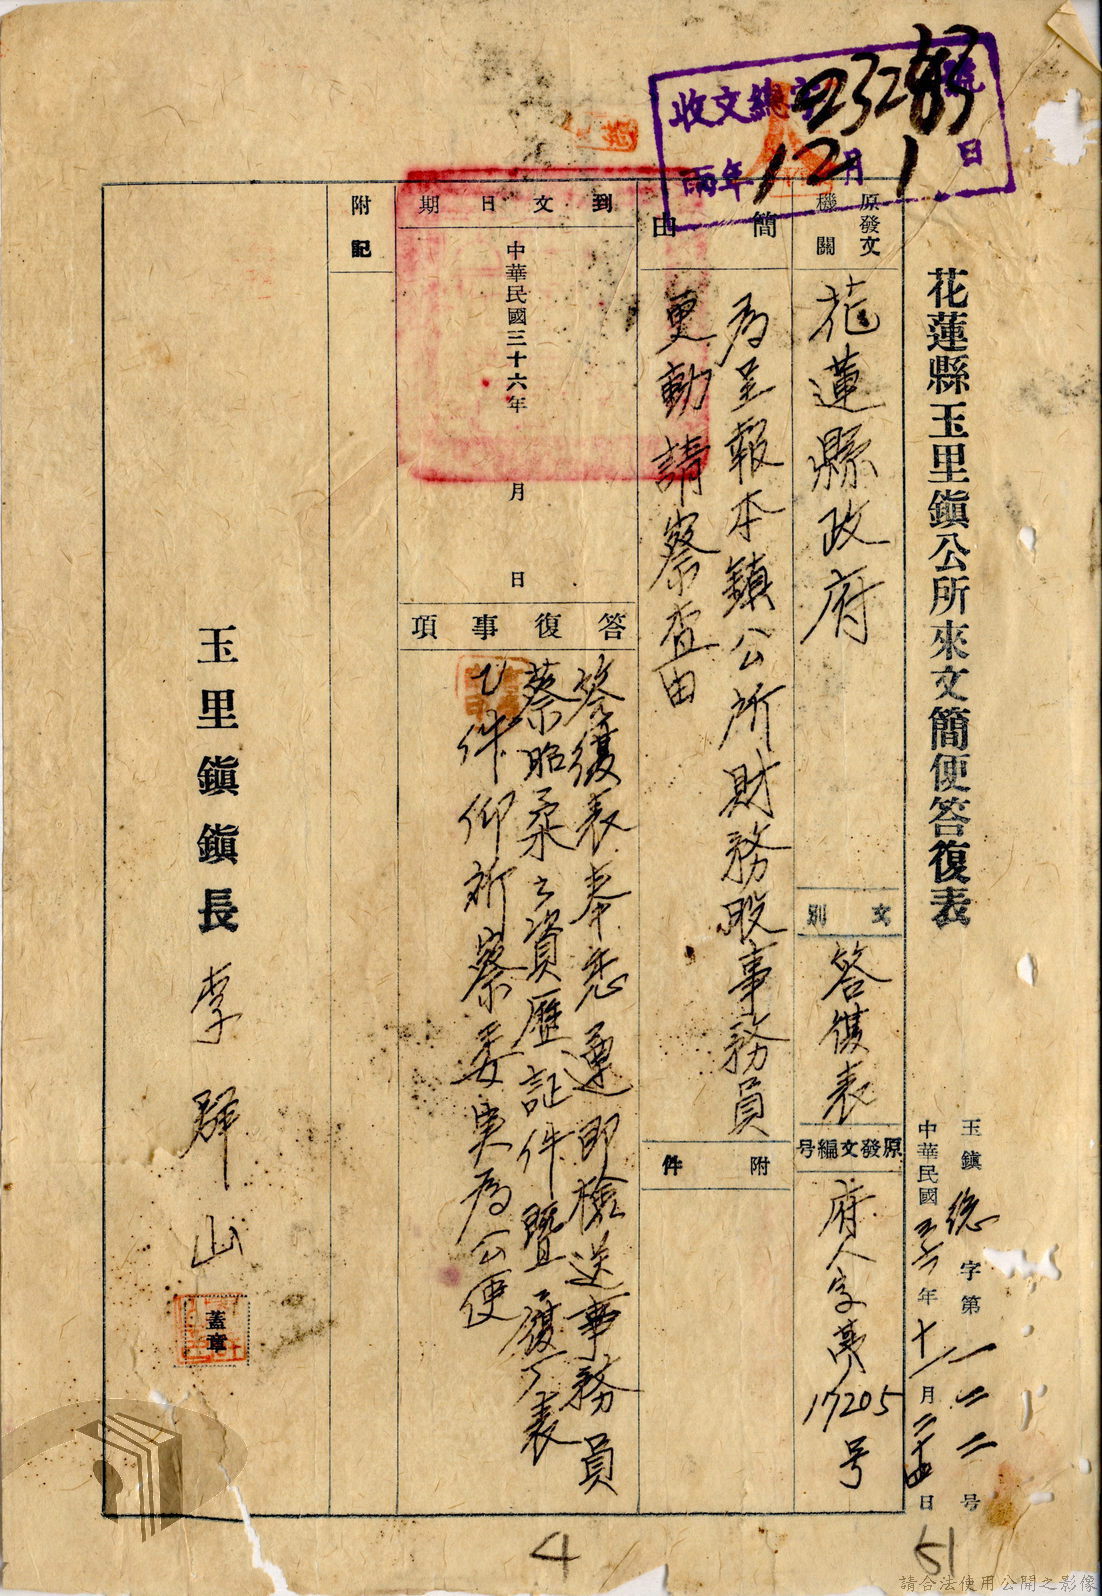 收文總字 號
丙年12月1日
花蓮縣玉里鎮公所來文簡便答復表
玉鎮總字第一二二号
中華民國三六年十一月二十四日
原發文機關
花蓮縣政府
文別
答復表
原發文編号
府人字第17205号
簡由
為呈報本鎮公所財務股事務員
更動請察查由
附件
到文日期
中華民國三十六年 月 日
答復事項
答復表奉悉遵即檢送事務員
蔡昭柔之資歷証件暨履丁表
乙件仰祈察委実為公便
附記
玉里鎮鎮長 李群山
蓋章
4
51
請合法使用公開之影像